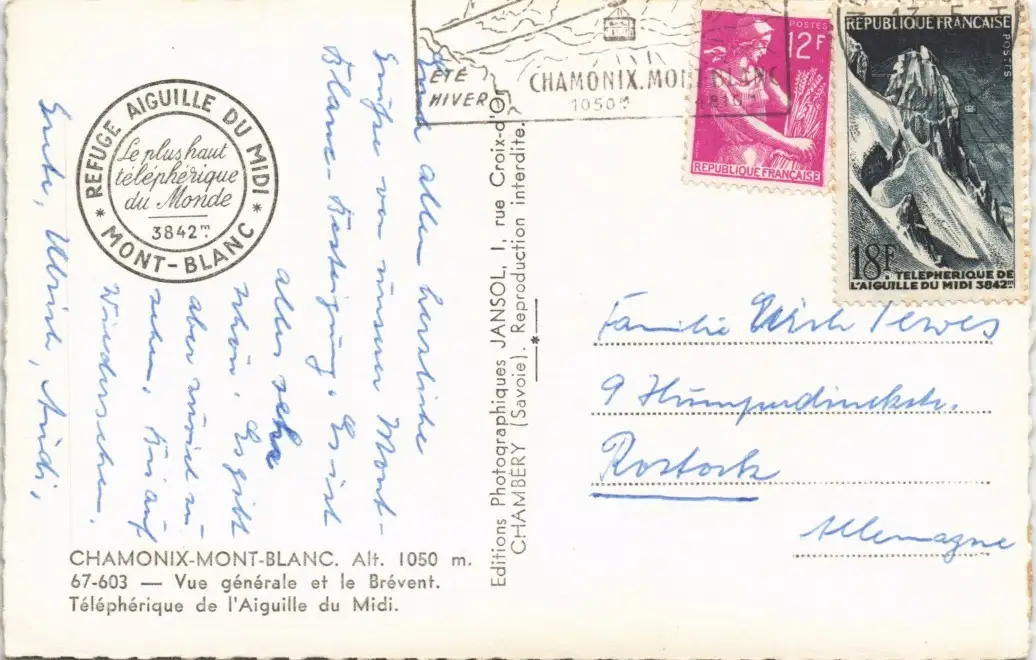 ÉTÉ
HIVER
CHAMONIX.MONT-BLANC
1050m
POSTES
12F
RÉPUBLIQUE FRANÇAISE
RÉPUBLIQUE FRANÇAISE
POSTES
18F.
TELEPHERIQUE DE
L'AIGUILLE DU MIDI 3842m
REFUGE AIGUILLE DU MIDI
* MONT-BLANC *
Le plus haut
téléphérique
du Monde
3842m
Euch allen herzliche
Grüße von unserer Mont-
Blanc-Besteigung. Es ist
alles sehr
schön. Es gibt
aber zuviel zu
sehen. Bis auf
Wiedersehen.
Ulrich,
Editions Photographiques JANSOL, 1, rue Croix-d'Or
CHAMBÉRY (Savoie). Reproduction interdite.
Familie
9 Humperdinckstr.
Rostock
Allemagne
CHAMONIX-MONT-BLANC. Alt. 1050 m.
67-603 — Vue générale et le Brévent.
Téléphérique de l'Aiguille du Midi.